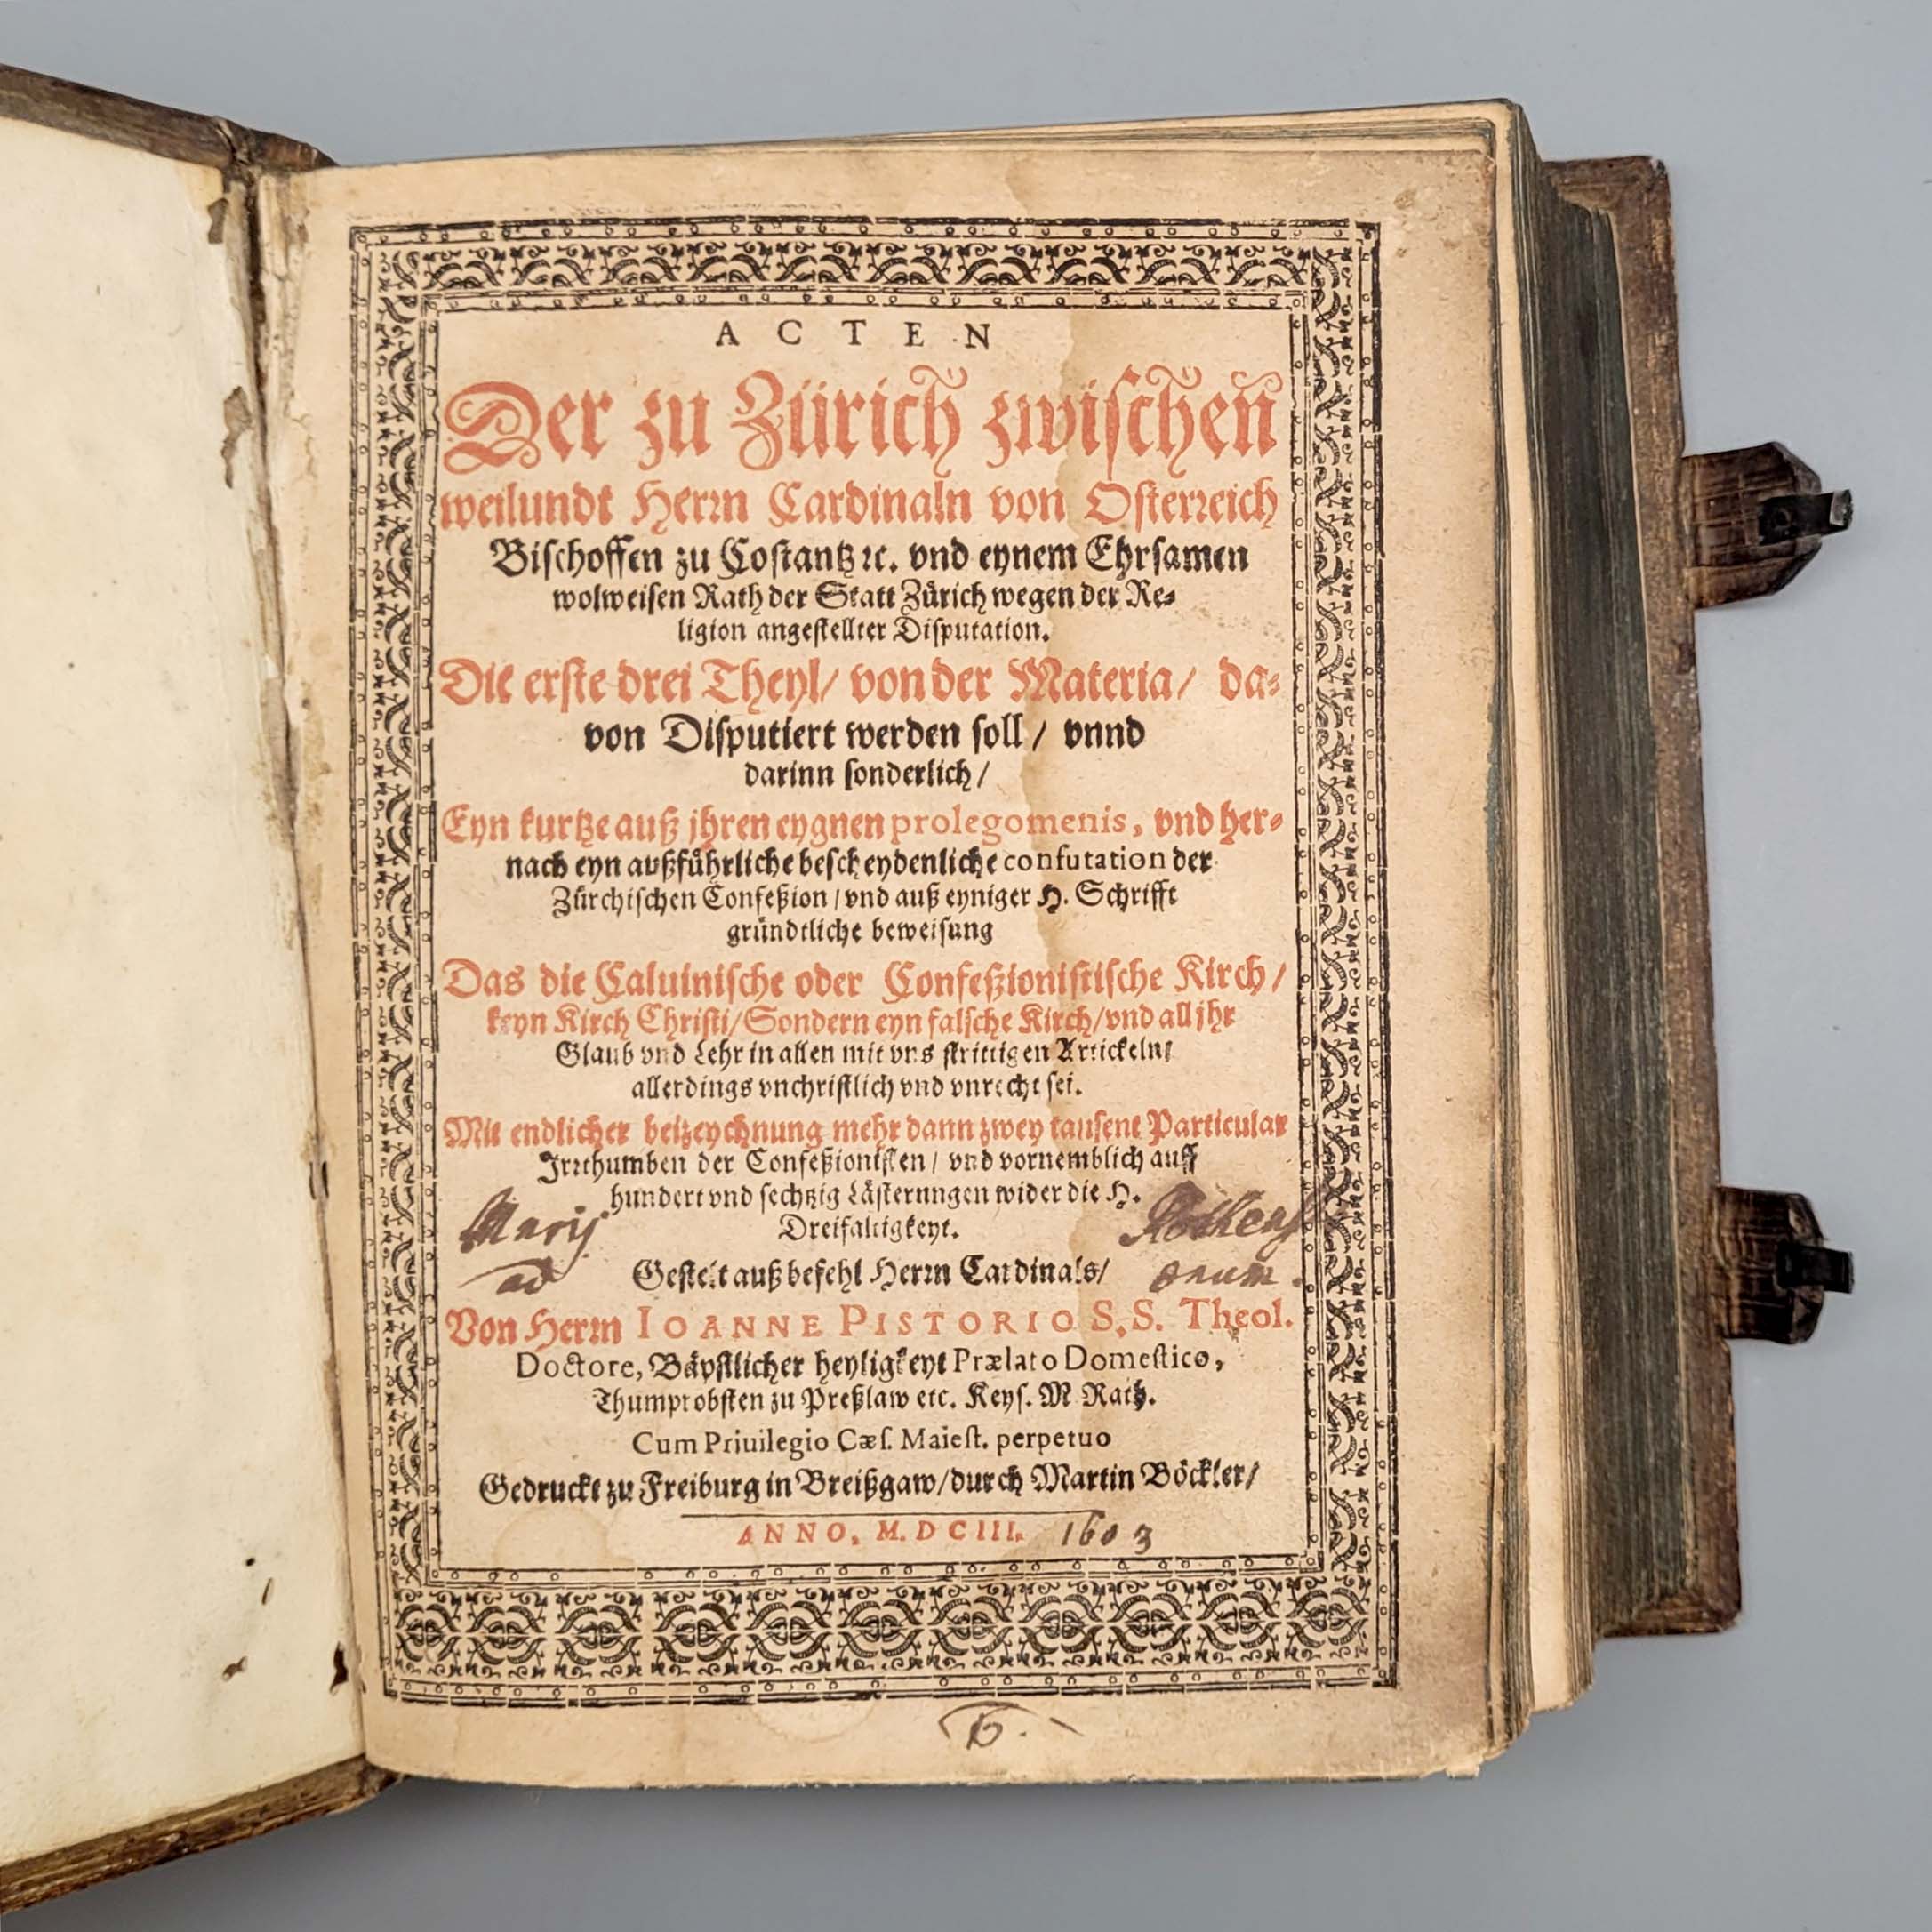 ACTEN
Der zu Zürich zwischen̄
weilundt Herrn Cardinaln von Osterreich
Bischoffen zu Costantz ꝛc. vnd eynem Ehrsamen
wolweisen Rath der Statt Zürich wegen der Re-
ligion angestellter Disputation.
Die erste drei Theyl/ von der Materia/ da-
von Disputiert werden soll/ vnnd
darinn sonderlich/
Eyn kurtze auß jhren eygnen prolegomenis, vnd her-
nach eyn außführliche bescheydenliche confutation der
Zürchischen Confeßion/ vnd auß eyniger H. Schrifft
gründtliche beweisung
Das die Caluinische oder Confeßionistische Kirch/
keyn Kirch Christi/ Sondern eyn falsche Kirch/ vnd all jhr
Glaub vnd Lehr in allen mit vns strittigen Artickeln/
allerdings vnchristlich vnd vnrecht sei.
Mit endlicher beizeychnung mehr dann zwey tausent Particular
Irrthumben der Confeßionisten/ vnd vornemblich auff
hundert vnd sechtzig Lästerungen wider die H.
Dreifaltigkeyt.
ad
Gestelt auß befehl Herrn Cardinals/
Von Herrn IOANNE PISTORIO S.S. Theol.
Doctore, Bäpstlicher heyligkeyt Prælato Domestico,
Thumprobsten zu Preßlaw etc. Keys. M Rath.
Cum Priuilegio Cæs. Maiest. perpetuo
Gedruckt zu Freiburg in Breißgaw/ durch Martin Böckler/
ANNO, M. DCIII. 1603